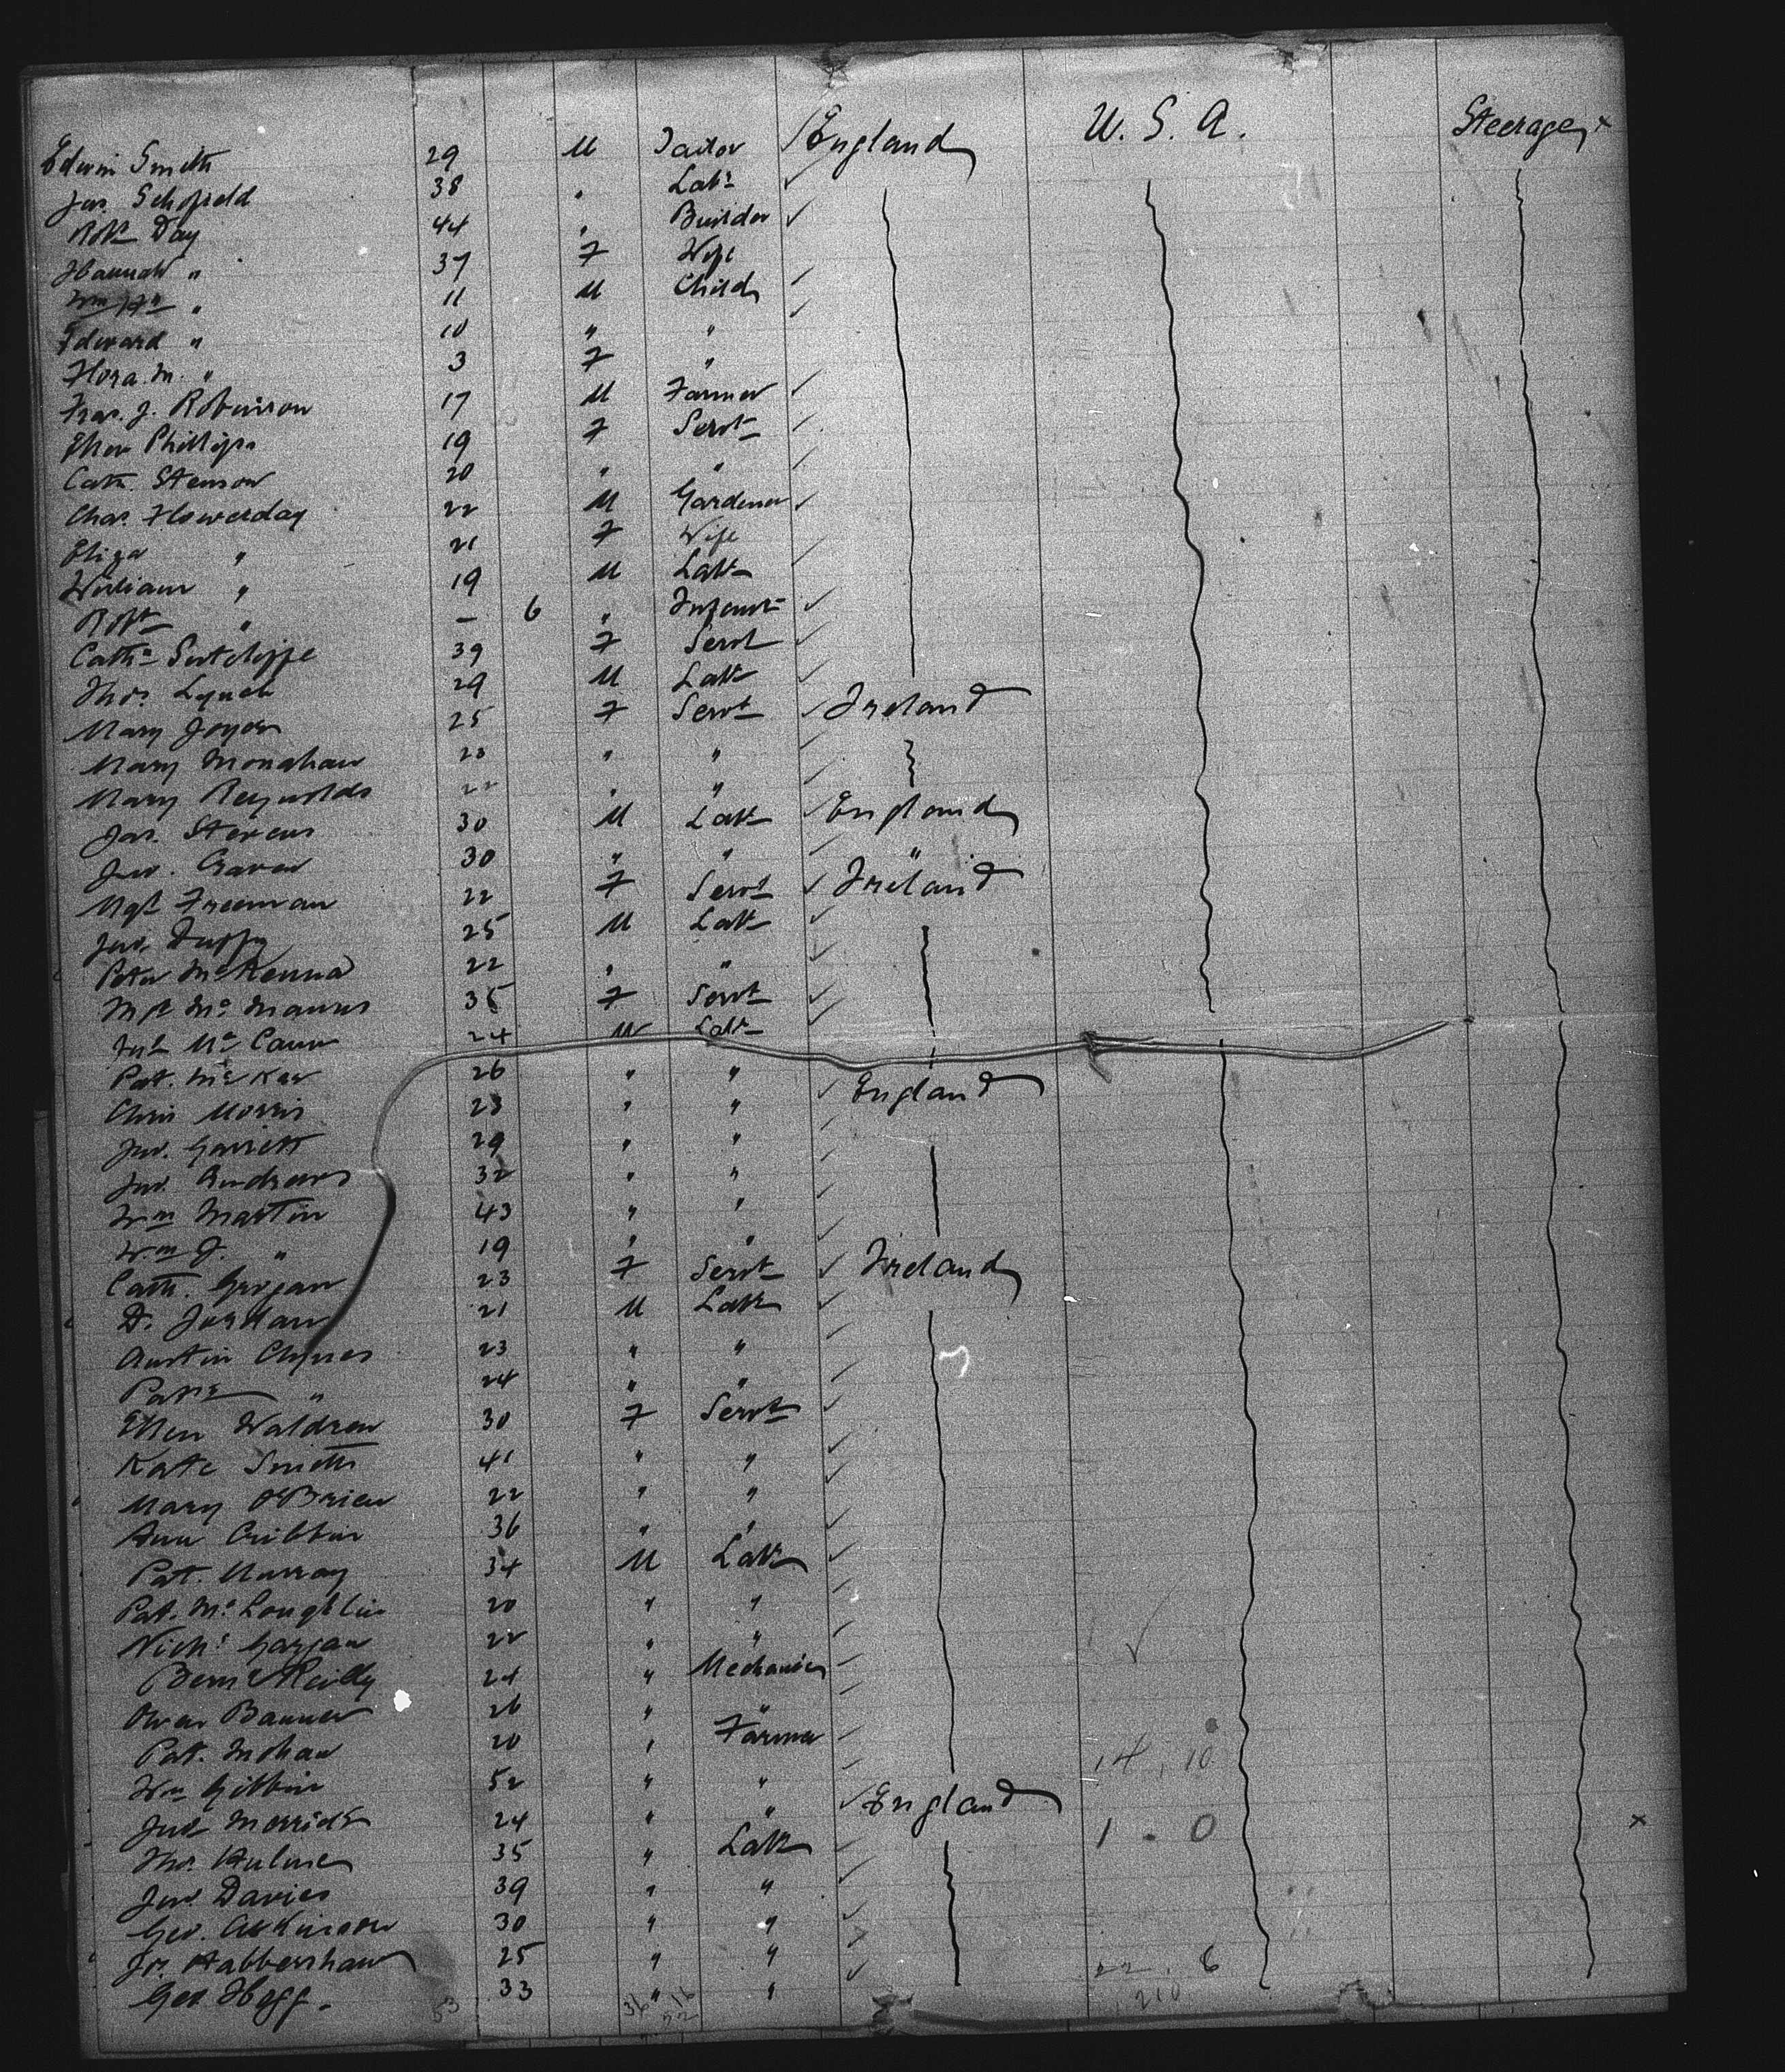 Edwin Smith 29 M Tailor England U.S.A. Steerage
Jas. Schofield 38 " Labr
Robt Day 44 " Builder
Hannah " 37 F Wife
Wm Hy " 11 M Child
Edward " 10 " "
Flora M. " 3 F "
Fras. J. Robinson 17 M Farmer
Ellen Phillips 19 F Servt
Cath. Stenson 20 " "
Chas. Flowerday 22 M Gardener
Eliza " 21 F Wife
William " 19 M Labr
Robt " — 6 " Infant
Cathe Sutcliffe 39 F Servt
Thos. Lynch 29 M Labr
Mary Joyce 25 F Servt Ireland
Mary Monahan 23 " "
Mary Reynolds 22 " "
Jas. Stevens 30 M Labr England
Jno. Craven 30 " " "
Mgt Freeman 22 F Servt Ireland
Jno. Duffy 25 M Labr
Peter McKenna 22 " "
Mgt McManus 35 F Servt
Jno McCann 24 M Labr
Pat. McKee 26 " "
Chris Morris 23 " " England
Jno. Garrett 29 " "
Jno. Andrews 32 " "
Wm Martin 43 " "
Wm J. " 19 " "
Cath. Grogan 23 F Servt Ireland
D. Jordan 21 M Labr
Austin Clynes 23 " "
Patk " 24 " "
Ellen Waldron 30 F Servt
Kate Smith 41 " "
Mary O'Brien 22 " "
Ann Cribbin 36 " "
Pat. Murray 34 M Labr
Pat. McLoughlin 20 " "
Nichs Gargan 22 " "
Bernd Reilly 24 " Mechanic
Owen Banner 26 " "
Pat. Mohan 20 " Farmer
Wm Gibbin 52 " " 14.10
Jno Merrick 24 " " England
Thos. Hulme 35 " Labr 1-0
Jno. Davies 39 " "
Geo. Atkinson 30 " "
Js. Habbershaw 25 " "
Geo Hogg. 33 " " 22.6
53 36 16 210
52